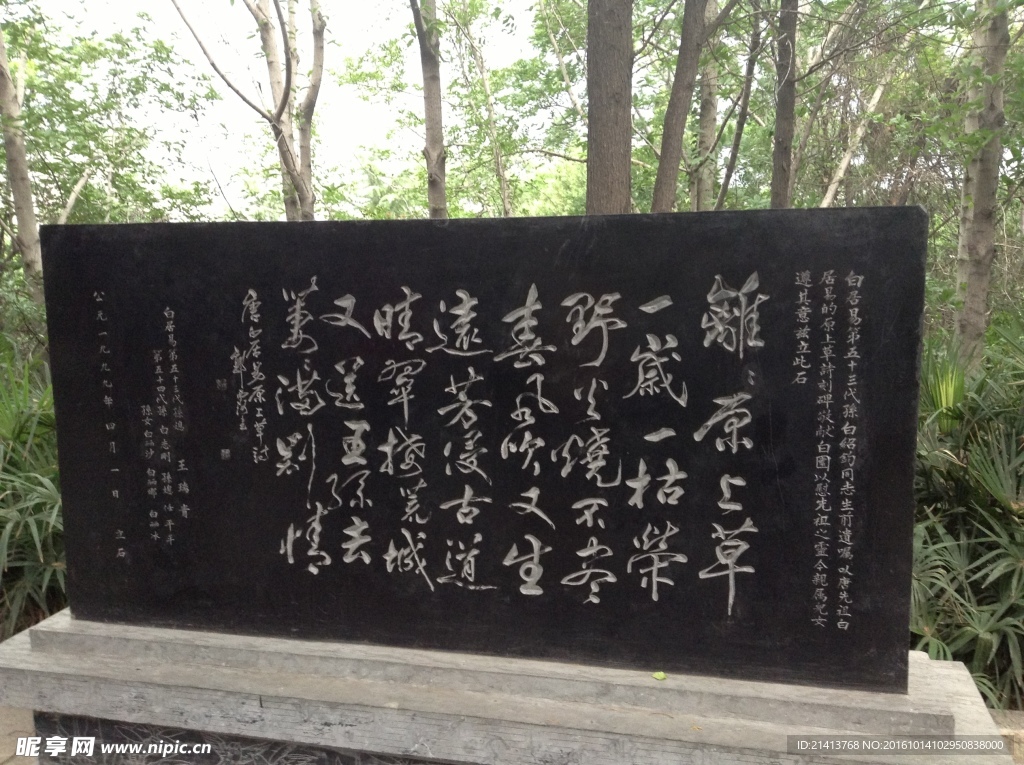 白居易第五十三代孫白紹鈞同志生前遺囑以唐先祖白
居易的原上草詩刻碑敬献白園以慰先祖之靈今親属兒女
遵其意敬立此石
離〻原上草
一歲一枯榮
野火燒不盡
春風吹又生
遠芳侵古道
晴翠接荒城
又送王孫去
萋〻滿別情
唐白居易原上草詩
白居易第五十三代孫媳 王瑞青
第五十四代孫 白志刚 孫媳
孫女
公元一九九九年四月一日 立石
昵享网 www.nipic.cn
ID:21413768 NO:20161014102950838000